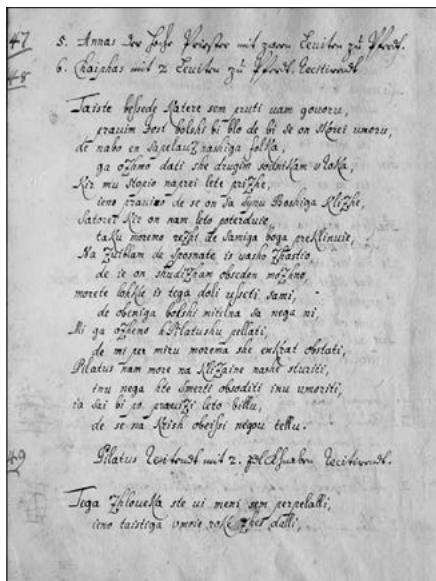 47 5. Annas der hohe Priester mit zween Leviten zu Pferdt.
48 6. Chaiphas mit 2 Leviten zu Pferdt. Recitirendt
Taiste bessede katere sem pruti vam govoru,
pravim dost bolshi bi blo de bi se on skorei umoru,
de nabo en sapelauz nashiga folka,
ga ozhmo dati she drugim sodnikam u roka,
Kir mu stopio naprei lete prizhe,
ieno pravimo de se on sa synu Boshiga klizhe,
Satorei kir on nam leto poterduie,
taku moremo rezhi de samiga boga preklinuie,
Na zutblam de sposnate is vasho zhastio,
de ie on shudizham obseden mozhno,
morete lohku is tega doli usseti sami,
de obeniga bolshi mitelna sa nega ni,
Mi ga ozhemo h Pilatushu pellati,
de mi per miru morema she enkrat obstati,
Pilatus nam more na klizaine nashe sturiti,
inu nega hte smerti obsoditi inu umoriti,
ia sai bi po pravizi leto billu,
de se na krish obeissi negou tellu.
49 Pilatus Reitendt mit 2. Recitirendt.
Tega Zhloveka ste vi meni sem perpelalli,
ieno taistiga vmoie roke zhes dalli,